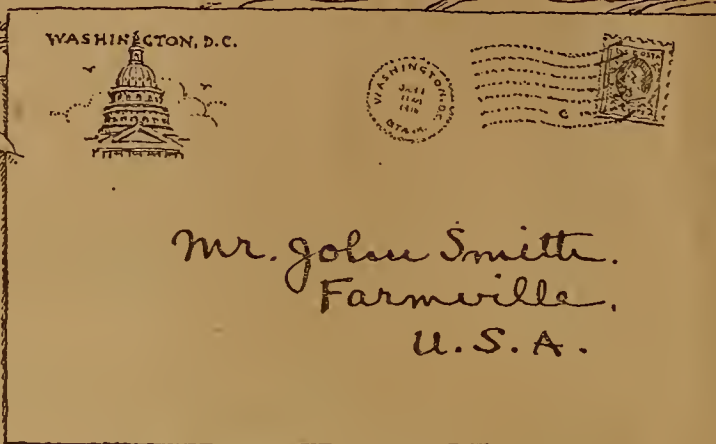 WASHINGTON, D.C.
WASHINGTON, D.C.
STA.
Mr. John Smith.
Farmville,
U.S.A.